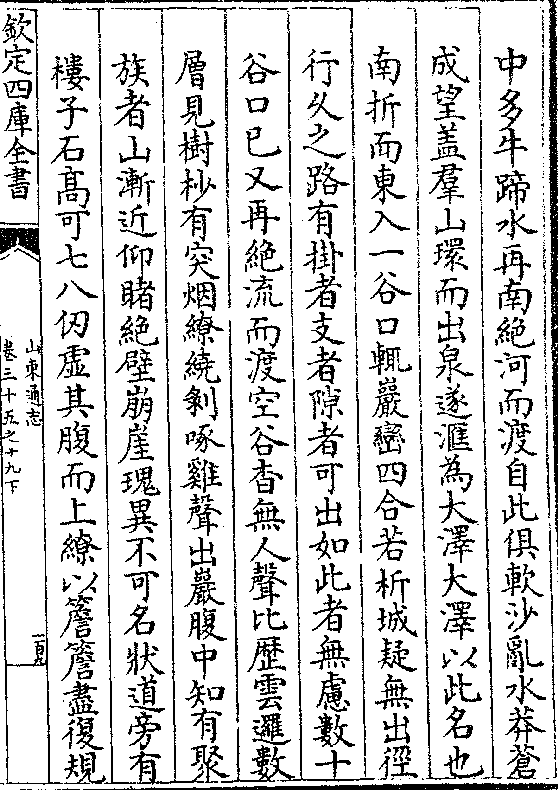 中多牛蹄水再南絶河而渡自此俱軟沙亂水莽蒼
成望盖羣山環而出泉遂滙為大澤大澤以此名也
南折而東入一谷口輒巖巒四合若析城疑無出徑
行乆之路有掛者支者隙者可出如此者無慮數十
谷口已又再絶流而渡空谷杳無人聲比歴雲邏數
層見樹杪有突烟繚繞剝啄雞聲出巖腹中知有聚
族者山漸近仰睹絶壁崩崖瑰異不可名狀道旁有
樓子石髙可七八仞虛其腹而上繚以簷簷盡復規
欽定四庫全書
山東通志
卷三十五之十九下
一百九